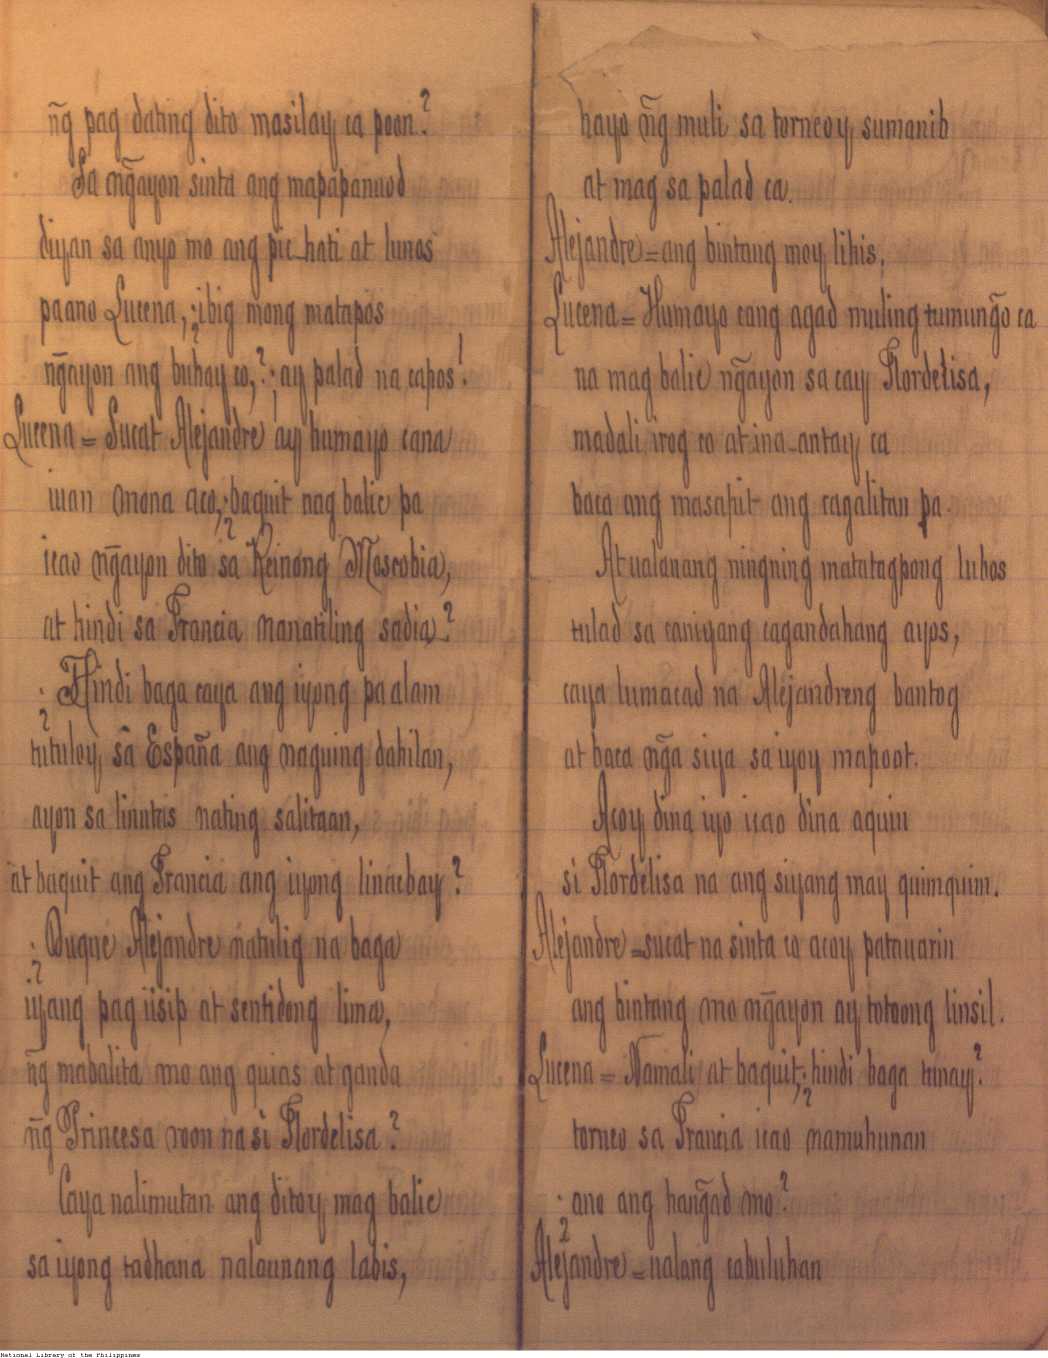 ñg pag dating dito masilay ca poon?
Sa mg̃ayon sinta ang mapapanuod
diyan sa anyo mo ang pic-hati at lunos
paano Lucena, ¿ibig mong matapos
ng̃ayon ang buhay co,? ¡ay palad na capos!
Lucena = Sucat Alejandre ay humayo cana
iuan mona aco, ¿baquit nag balic pa
icao ng̃ayon dito sa Reinong Moscobia,
at hindi sa Francia nanatiling sadia?
¿Hindi baga caya ang iyong pa alam
tutuloy, sa España ang naguing dahilan,
ayon sa linuas nating salitaan,
at baquit ang Francia ang iyong linacbay?
¿Duque Alejandre natulig na baga
iyang pag iisip at sentidong lima,
ñg mabalita mo ang quias at ganda
ñg Princesa roon na si Flordelisa?
Caya nalimutan ang ditoy mag balic
sa iyong tadhana nalaunang labis,
hayo ñg muli sa torneoy sumanib
at mag sa palad ca.
Alejandre = ang bintang moy lihis.
Lucena = Humayo cang agad muling tumung̃o ca
na mag balic ng̃ayon sa cay Flordelisa,
madali irog co at ina-antay ca
baca ang masapit ang cagalitan pa.
At ualanang ningning matatagpong lubos
tulad sa caniyang cagandahang ayos,
caya lumacad na Alejandreng bantog
at baca ñga siya sa iyoy mapoot.
Acoy dina iyo icao dina aquin
si Flordelisa na ang siyang may quimquim.
Alejandre = sucat na sinta co acoy patauarin
ang bintang mo mg̃ayon ay totoong linsil.
Lucena = Namali at baquit, ¿hindi baga tunay?
torneo sa Francia icao namuhunan
¿ano ang hang̃ad mo?
Alejandre = ualang cabuluhan
National Library of the Philippines